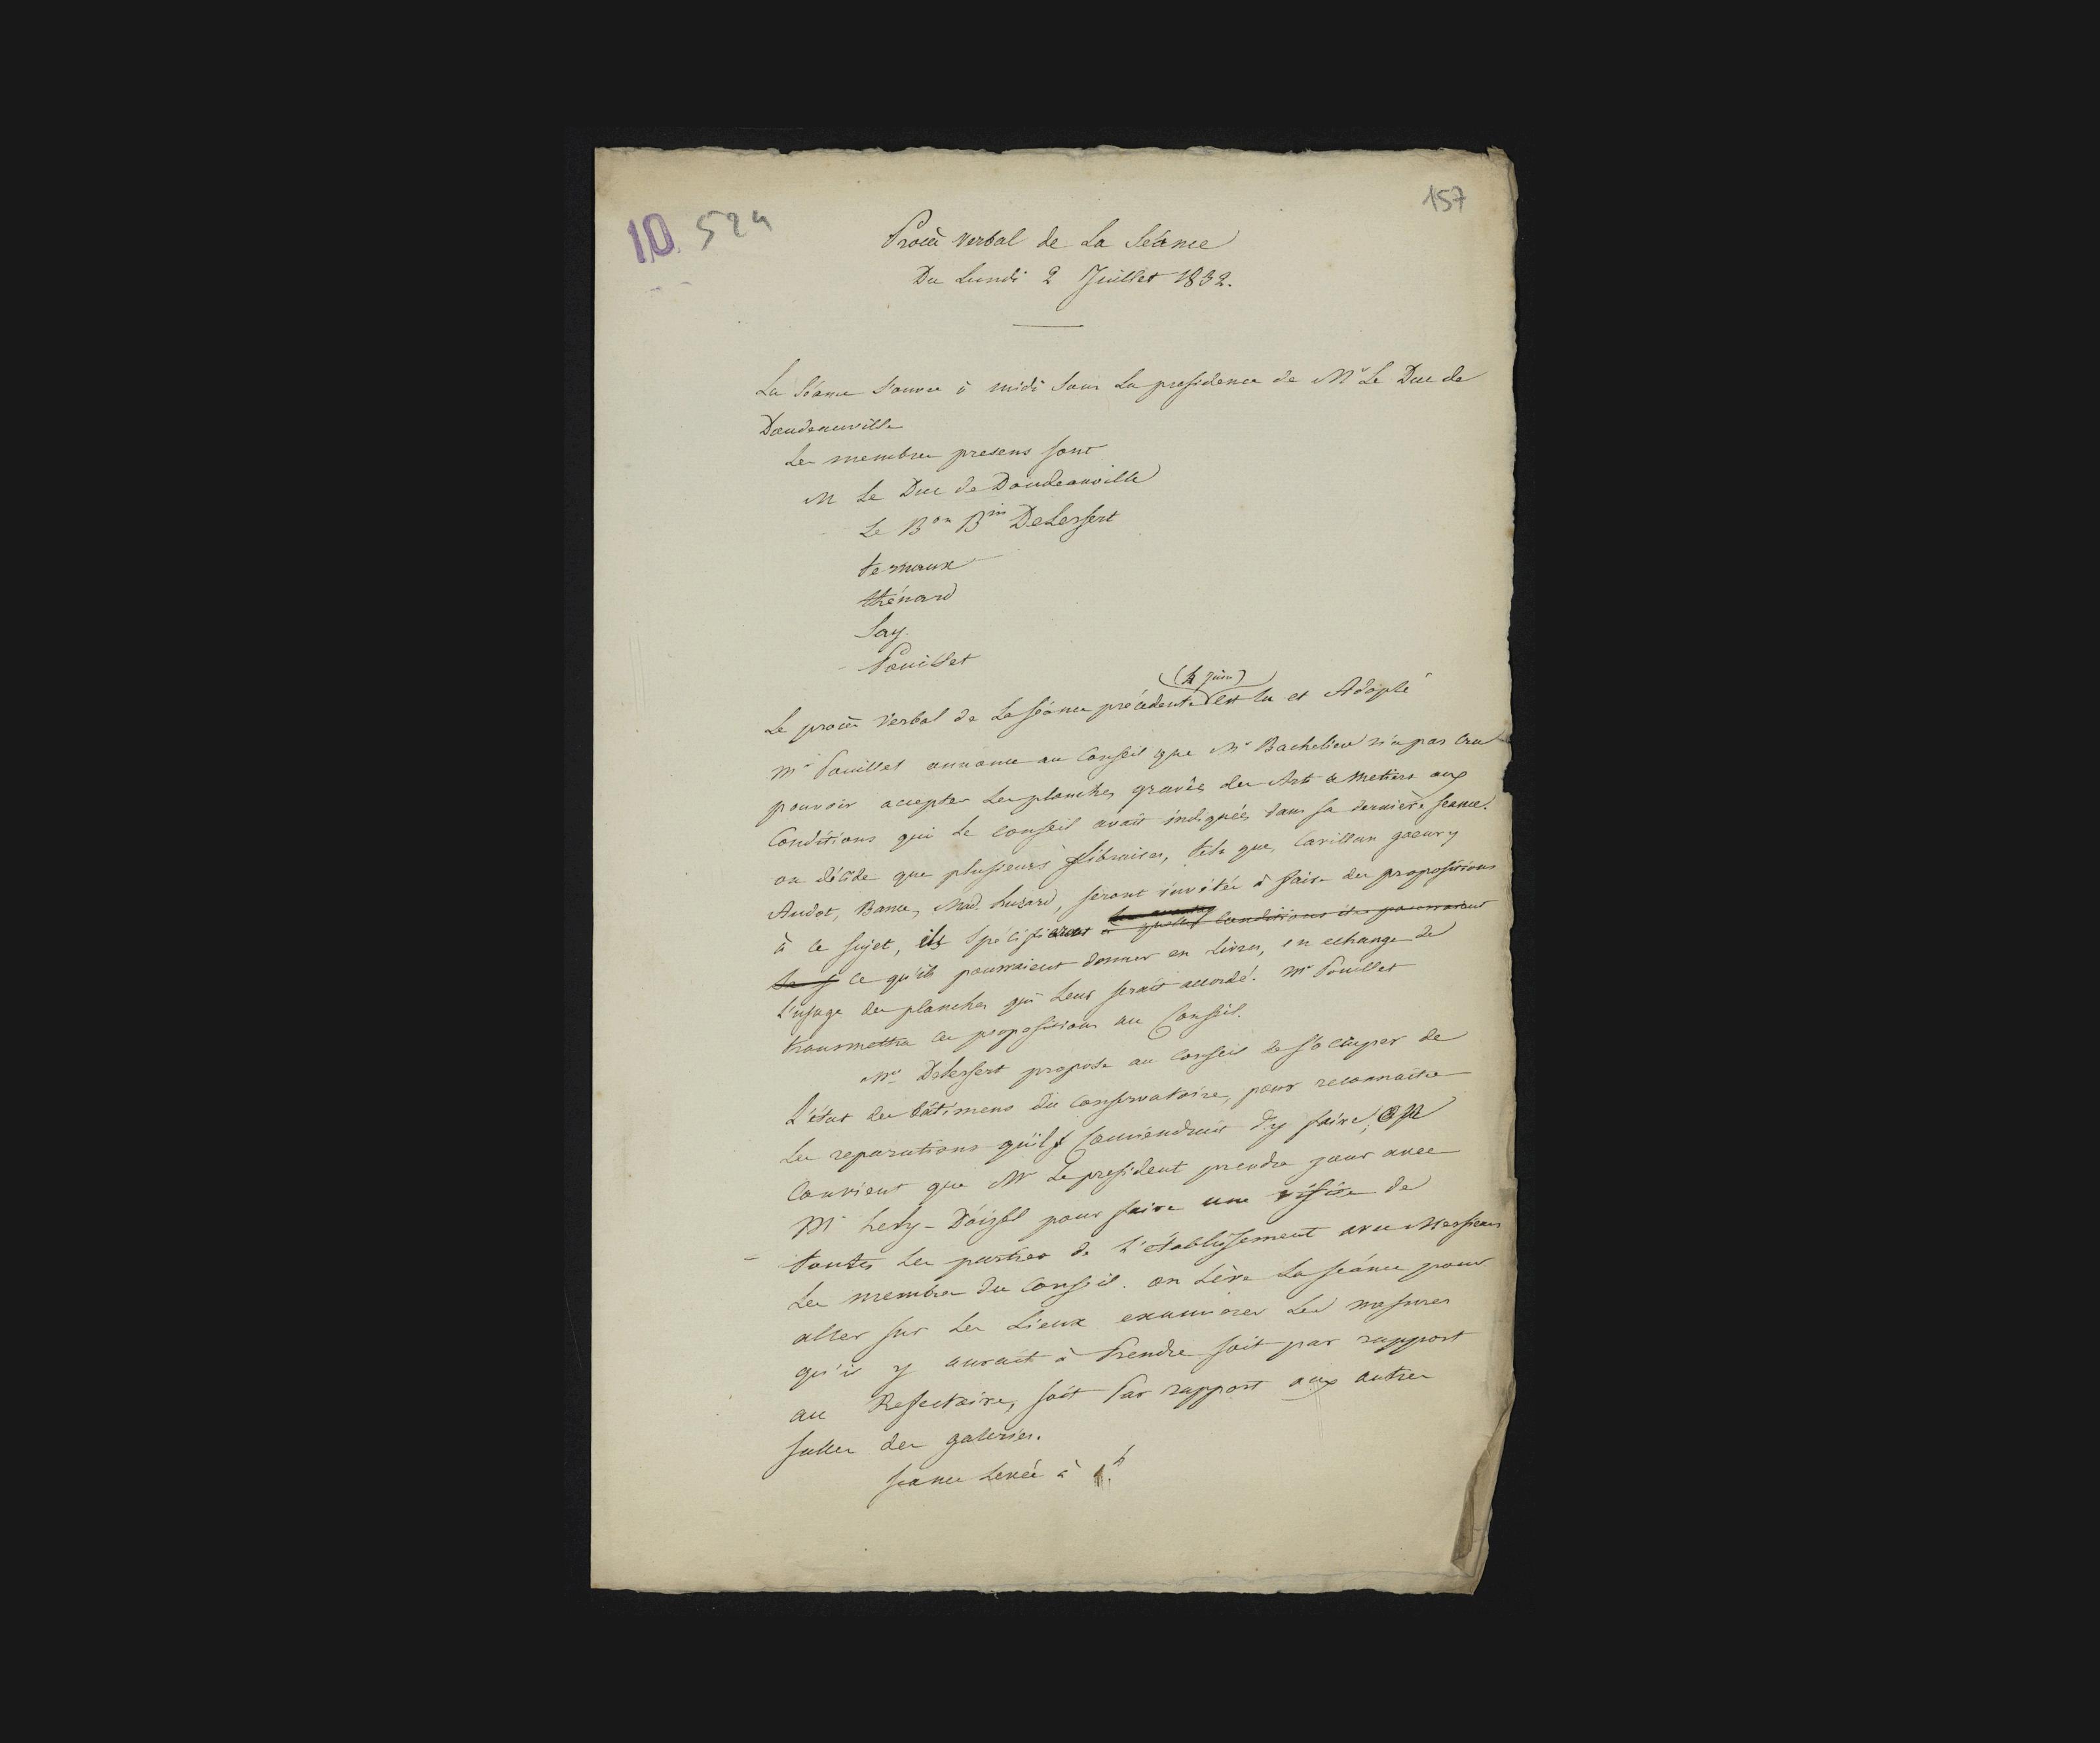 157
10. 524
Procès verbal de La Séance
Du Lundi 2 Juillet 1832.
La Séance s'ouvre à midi sous La présidence de Mr Le Duc de
Doudeauville
Les membres presens sont
M Le Duc de Doudeauville
Le Bon Bin DeLessert
ternaux
thénard
Say.
Pouillet
(4 juin)
Le procès verbal de La séance précédente est lu et Adopté
Mr Pouillet annonce au Conseil que Mr Bachelier n'a pas cru
pouvoir accepter Les planches gravées des Arts & Metiers aux
Conditions que Le conseil avait indiquées dans sa dernière seance.
on décide que plusieurs Libraires, tels que, Carillan gœury
Audot, Bance, Mad. huzard, seront invités à faire des propositions
à ce sujet, ils Spécifieront à quelles Conditions ils pourraient
ce qu'ils pourraient donner en Livres, en echange de
L'usage des planches qui Leur serait accordé. Mr Pouillet
transmettra ces propositions au Conseil.
Mr DeLessert propose au Conseil de s'occuper de
L'état des bâtimens du Conservatoire, pour reconnaître
Les reparations qu'il Conviendrait d'y faire, On
Convient que Mr Le president prendra jour avec
Mr Lety-Doizel pour faire une visite de
toutes Les parties de L'établissement avec Messieurs
Les membres du Conseil. on Lève La séance pour
aller sur Les Lieux examiner Les mesures
qu'il y aurait à Prendre soit par rapport
au Refectoire, soit Par rapport aux autres
salles des galeries.
seance Levée à 1.h